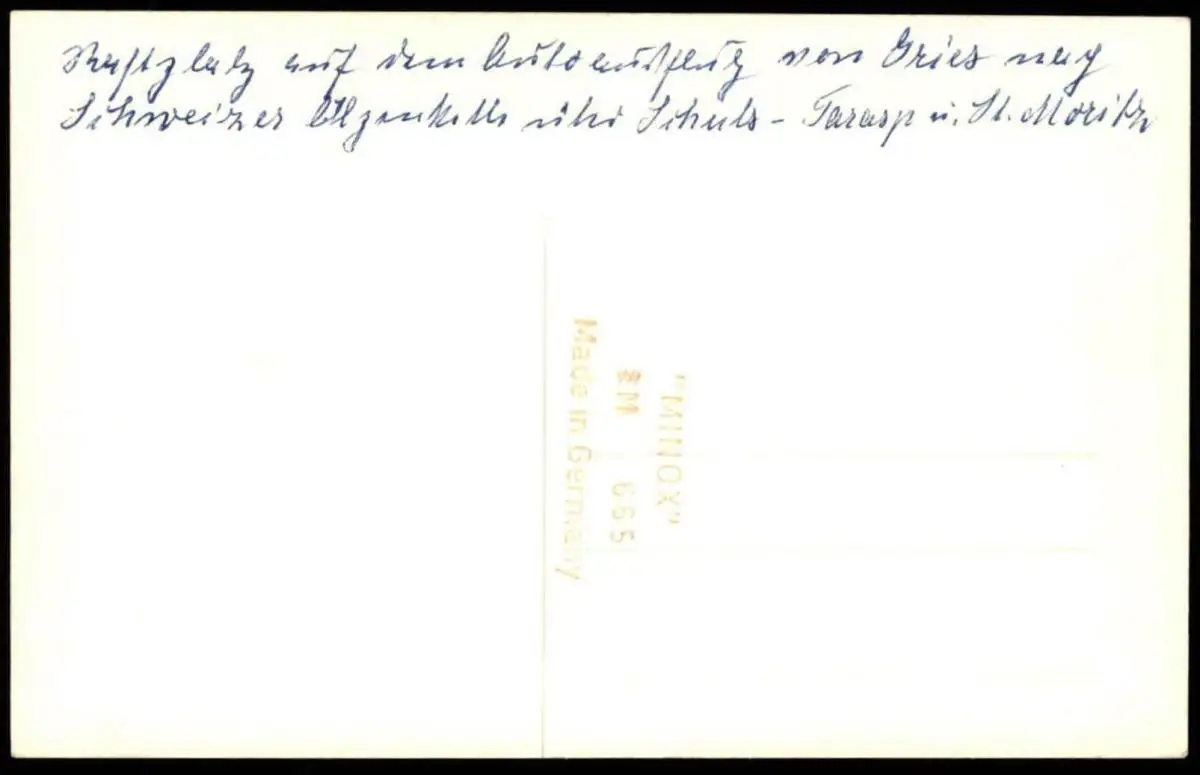 Rastplatz auf dem Autoausflug von Gries nach
Schweizer über Schuls - Tarasp u. St. Moritz
"MINOX"
8M 665
Made in Germany